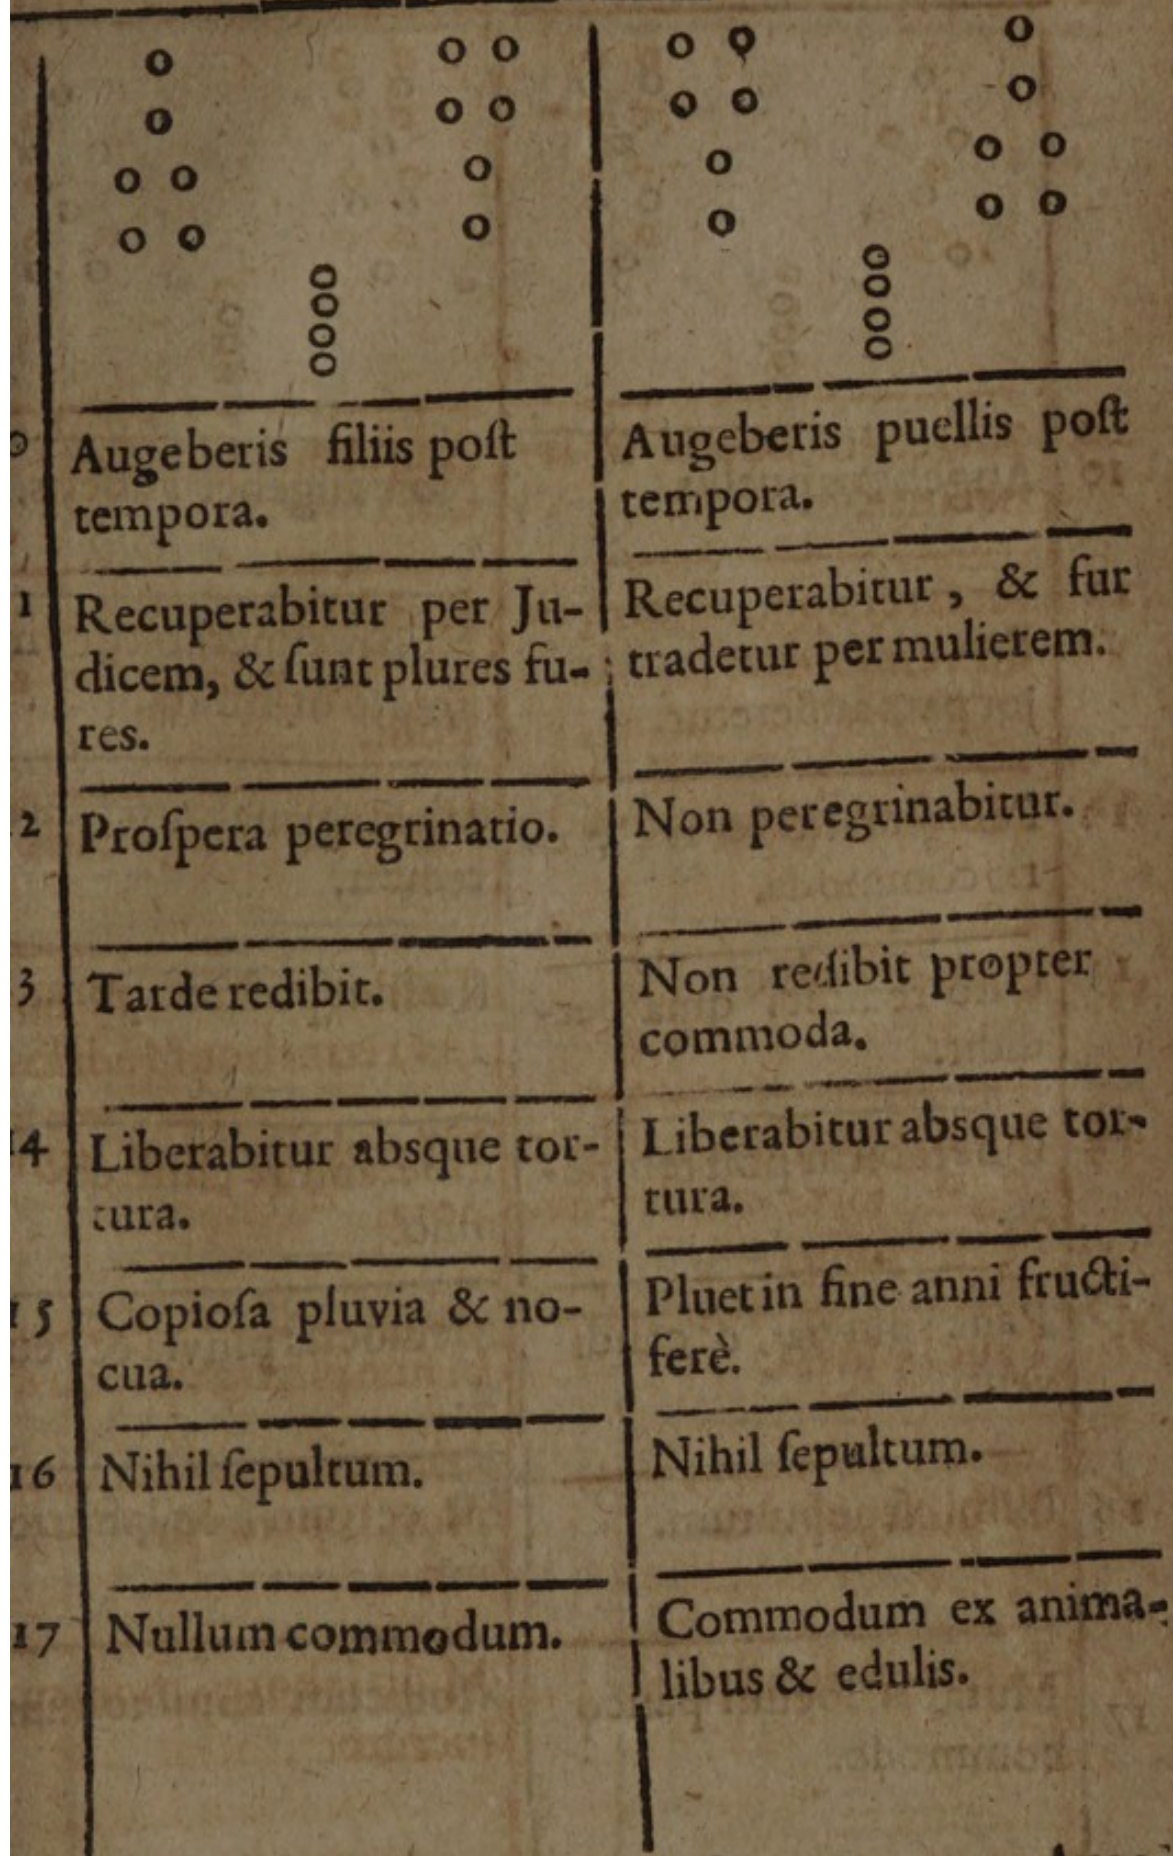 o Augeberis filiis poſt
tempora.
Augeberis puellis poſt
tempora.
1 Recuperabitur per Ju-
dicem, & ſunt plures fu-
res.
Recuperabitur, & fur
tradetur per mulierem.
2 Proſpera peregrinatio.
Non peregrinabitur.
3 Tarde redibit.
Non redibit propter
commoda.
14 Liberabitur absque tor-
tura.
Liberabitur absque tor-
tura.
15 Copioſa pluvia & no-
cua.
Pluet in fine anni fructi-
ferè.
16 Nihil ſepultum.
Nihil ſepultum.
17 Nullum commodum.
Commodum ex anima-
libus & edulis.